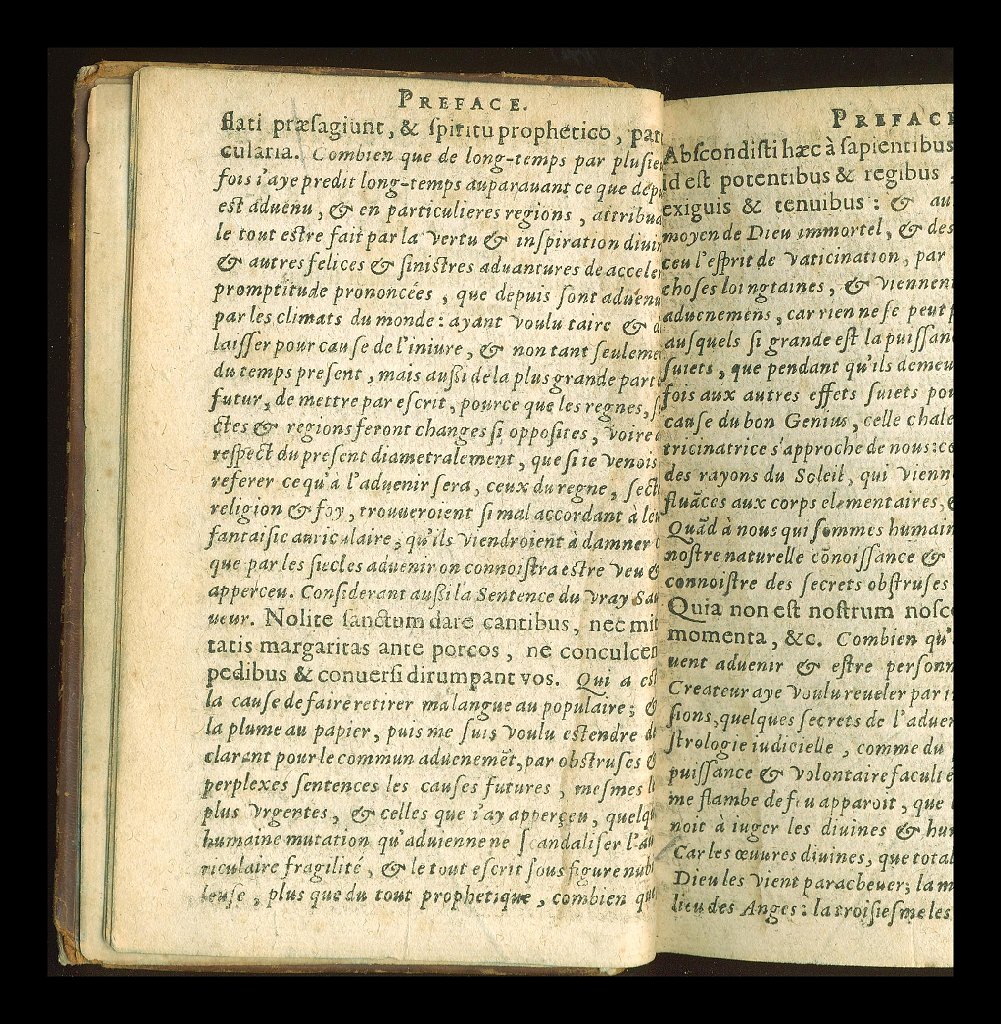 PREFACE.
flati præsagiunt, & spiritu prophetico, par
cularia. Combien que de long-temps par plusie
fois i'aye predit long-temps auparauant ce que dep
est aduenu, & en particulieres regions, attribua
le tout estre fait par la vertu & inspiration diui
& autres felices & sinistres aduantures de acceler
promptitude prononcées, que depuis sont aduenu
par les climats du monde: ayant voulu taire & d
laisser pour cause de l'iniure, & non tant seuleme
du temps present, mais aussi de la plus grande part
futur, de mettre par escrit, pource que les regnes, s
ctes & regions feront changes si opposites, voire
respect du present diametralement, que si ie venois
referer ce qu'à l'aduenir sera, ceux du regne, sect
religion & foy, trouueroient si mal accordant à le
fantaisie auriculaire, qu'ils viendroient à damner
que par les siecles aduenir on connoistra estre veu &
apperceu. Considerant aussi la Sentence du vray Sau
ueur. Nolite sanctum dare canibus, nec mit
tatis margaritas ante porcos, ne conculcen
pedibus & conuersi dirumpant vos. Qui a est
la cause de faire retirer ma langue au populaire; &
la plume au papier, puis me suis voulu estendre de
clarant pour le commun aduenemẽt, par obstruses &
perplexes sentences les causes futures, mesmes l
plus vrgentes, & celles que i'ay apperçeu, quelqu
humaine mutation qu'aduienne ne scandaliser l'au
riculaire fragilité, & le tout escrit sous figure nub
leuse, plus que du tout prophetique, combien que
PREFACE
Abscondisti hæc à sapientibus
id est potentibus & regibus,
exiguis & tenuibus: & au
moyen de Dieu immortel, & des
ceu l'esprit de vaticination, par
choses loingtaines, & viennent
aduenemens, car rien ne se peut p
ausquels si grande est la puissan
suiets, que pendant qu'ils demeu
fois aux autres effets suiets pou
cause du bon Genius, celle chale
tricinatrice s'approche de nous: co
des rayons du Soleil, qui vienn
fluãces aux corps elementaires, &
Quãd à nous qui sommes humain
nostre naturelle cõnoissance &
connoistre des secrets obstruses
Quia non est nostrum nosce
momenta, &c. Combien qu'
uent aduenir & estre personn
Createur aye voulu reueler par i
sions, quelques secrets de l'aduen
strologie iudicielle, comme du
puissance & volontaire faculté
me flambe de feu apparoit, que
noit à iuger les diuines & hum
Car les œuures diuines, que total
Dieu les vient parachever; la m
lieu des Anges: la troisiesme les